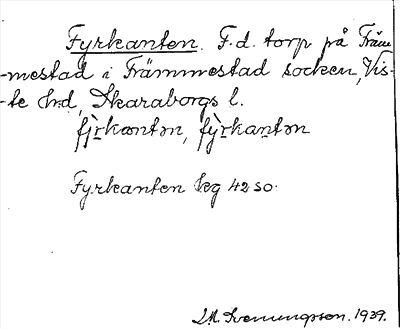 Fyrkanten. F.d. torp på Främ
-mestad i Främmestad socken, Vis-
-te hd, Skaraborgs l.
fỳrkantən, fỳrkantən
Fyrkanten Kg 42 so.
Svenungsson. 1939.